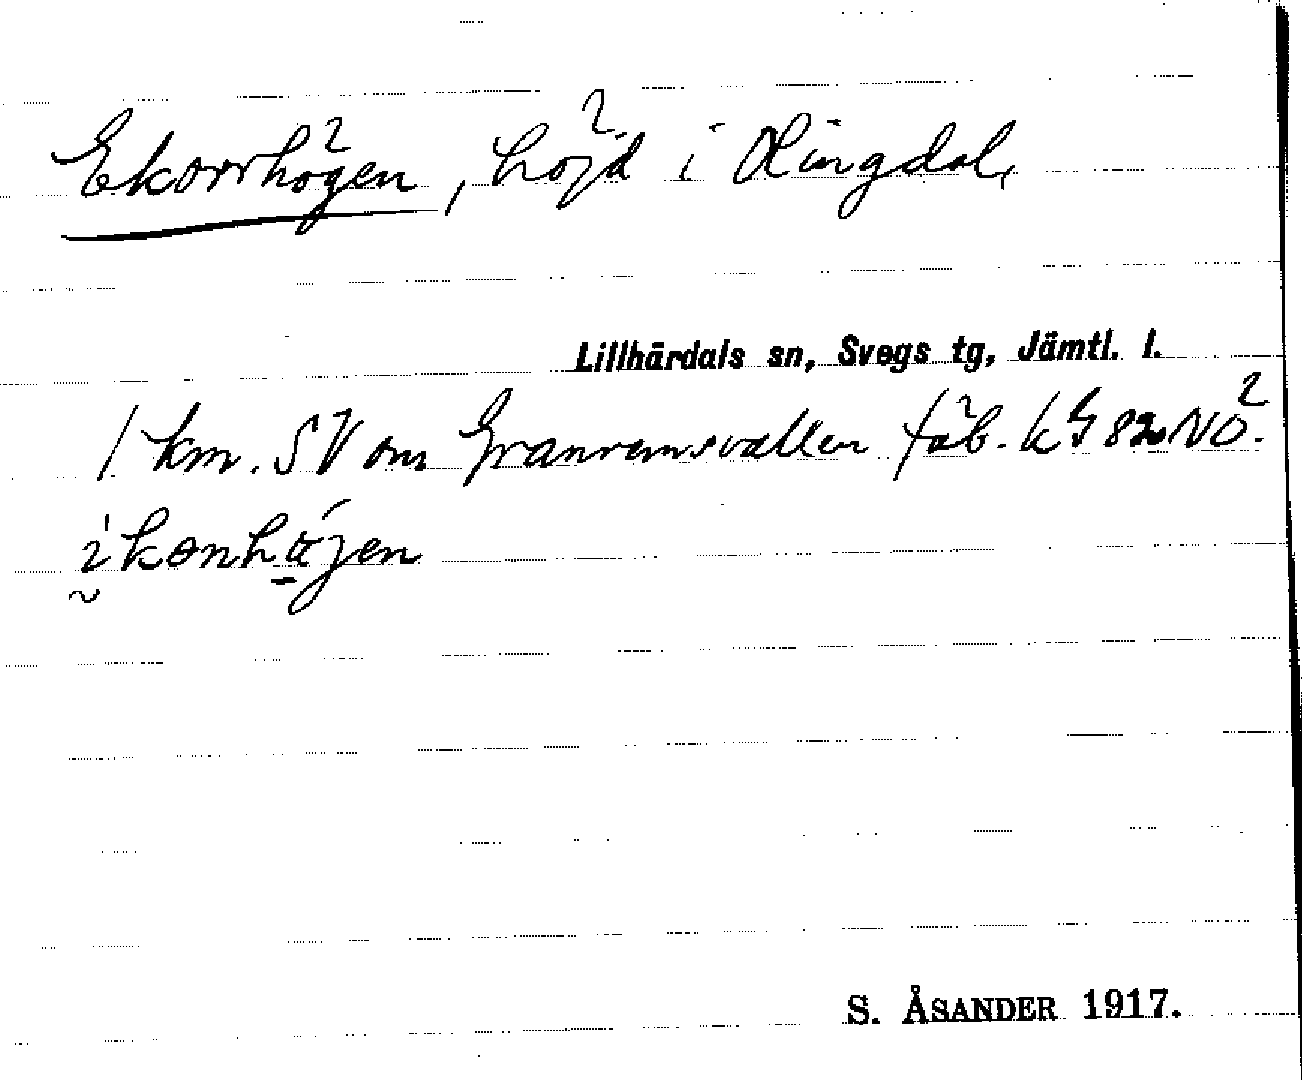 Ekorrhögen, höjd i Olingdal,
Lillhärdals sn, Svegs tg, Jämtl. l.
1 km. SV om Granremsvallen fäb. kG 82 NO.
S. ÅSANDER 1917.